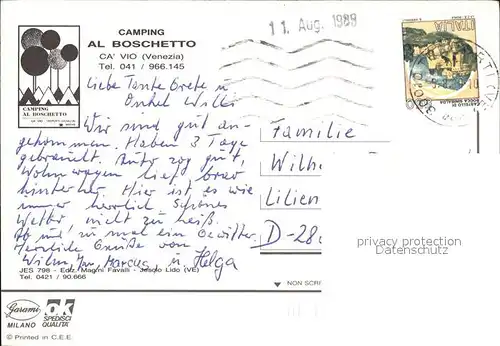 CAMPING
AL BOSCHETTO
CA' VIO (Venezia)
Tel. 041 / 966.145
11. Aug. 1989
ITALIA
CAMPING
AL BOSCHETTO
Liebe Tante Grete u
Onkel Willi
Wir sind gut an-
gekommen. Haben 3 Tage
gebraucht. Auto zog gut,
Wohnwagen lief brav
hinterher. Hier ist es wie
immer herrlich Schönes
Wetter nicht zu heiß.
Ab und zu mal ein Gewitter
Herzliche Grüße von
Wilm, Marcus u. Helga
Familie
Wilh
Lilien
D-28
privacy protection
Datenschutz
JES 798 - Ediz. Magini Favalli - Jesolo Lido (VE)
Tel. 0421 / 90.666
NON SCRI
Garami
MILANO
OK
SPEDISCI
QUALITA'
© Printed in C.E.E.